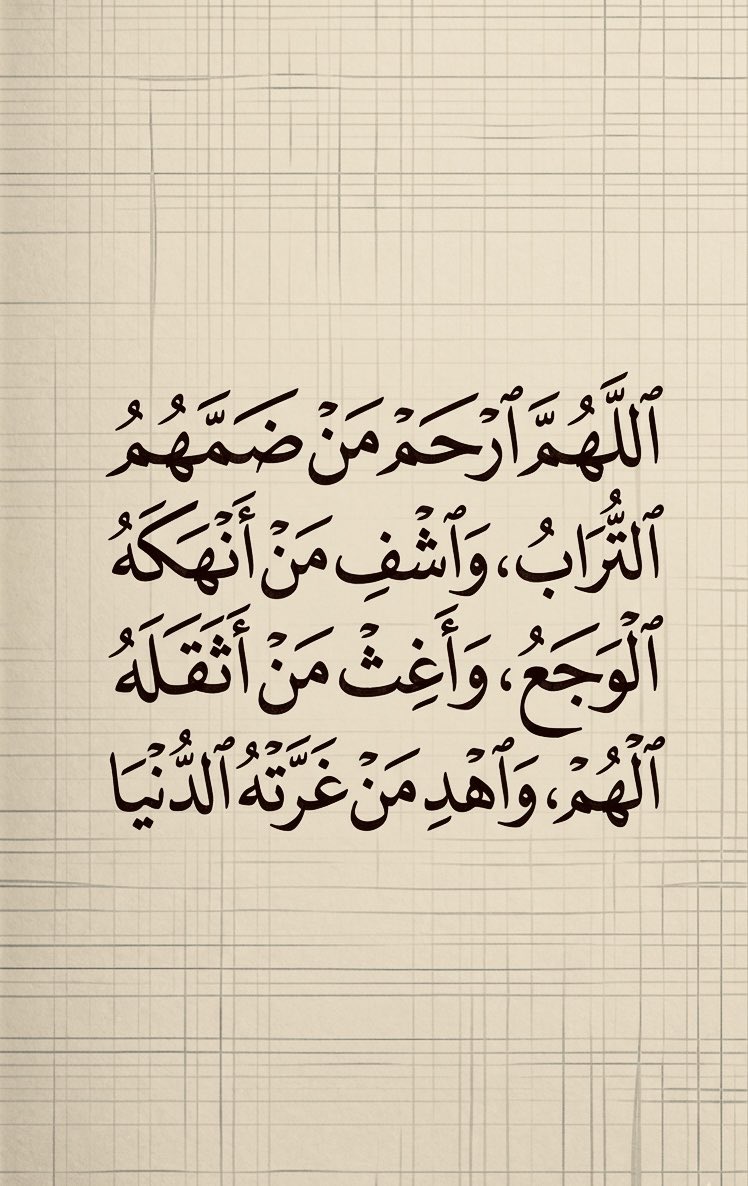 ٱللَّهُمَّ ٱرْحَمْ مَنْ ضَمَّهُمُ
ٱلتُّرَابُ، وَٱشْفِ مَنْ أَنْهَكَهُ
ٱلْوَجَعُ، وَأَغِثْ مَنْ أَثَقَلَهُ
ٱلْهُمْ، وَٱهْدِ مَنْ غَرَّتْهُ ٱلدُّنْيَا